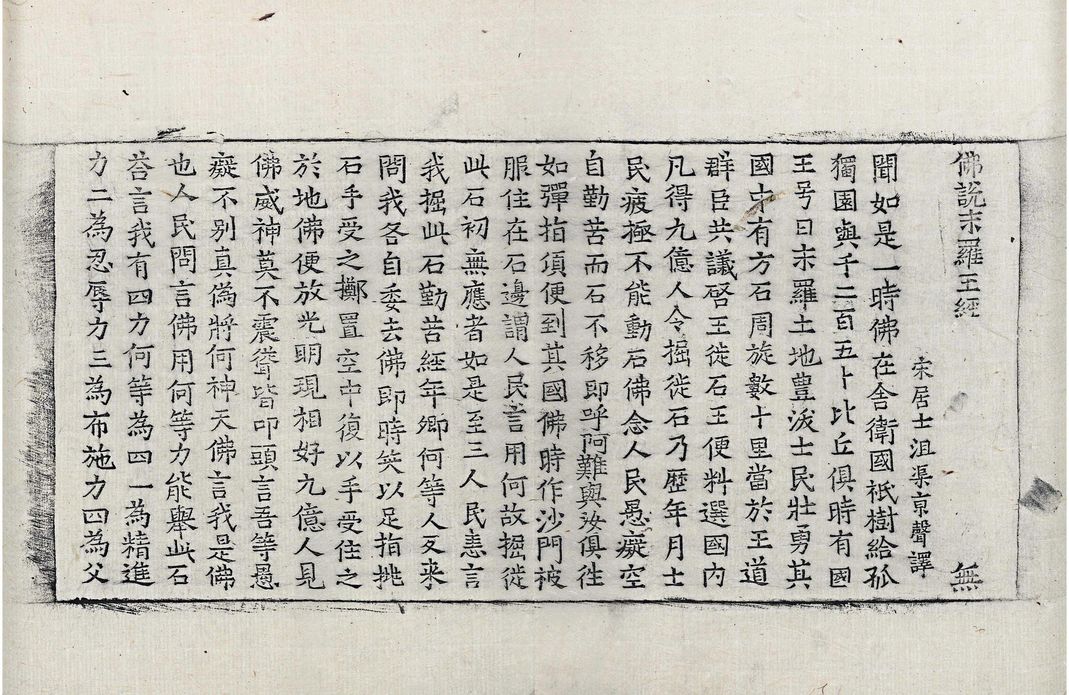 佛說末羅王經 無
宋居士沮渠京聲譯
聞如是一時佛在舍衛國祇樹給孤
獨園與千二百五十比丘俱時有國
王号曰末羅土地豊沃士民壯勇其
國中有方石周旋數十里當於王道
群臣共議啓王徙石王便料選國內
凡得九億人令掘徙石乃歷年月士
民疲極不能動石佛念人民愚癡空
自勤苦而石不移即呼阿難與汝俱往
如彈指頃便到其國佛時作沙門被
服住在石邊謂人民言用何故掘徙
此石初無應者如是至三人民恚言
我掘此石勤苦經年卿何等人反来
問我各自委去佛即時笑以足指挑
石手受之擲置空中復以手受住之
於地佛便放光明現相好九億人見
佛威神莫不震聳皆叩頭言吾等愚
癡不別真僞將何神天佛言我是佛
也人民問言佛用何等力能舉此石
荅言我有四力何等為四一為精進
力二為忍辱力三為布施力四為父